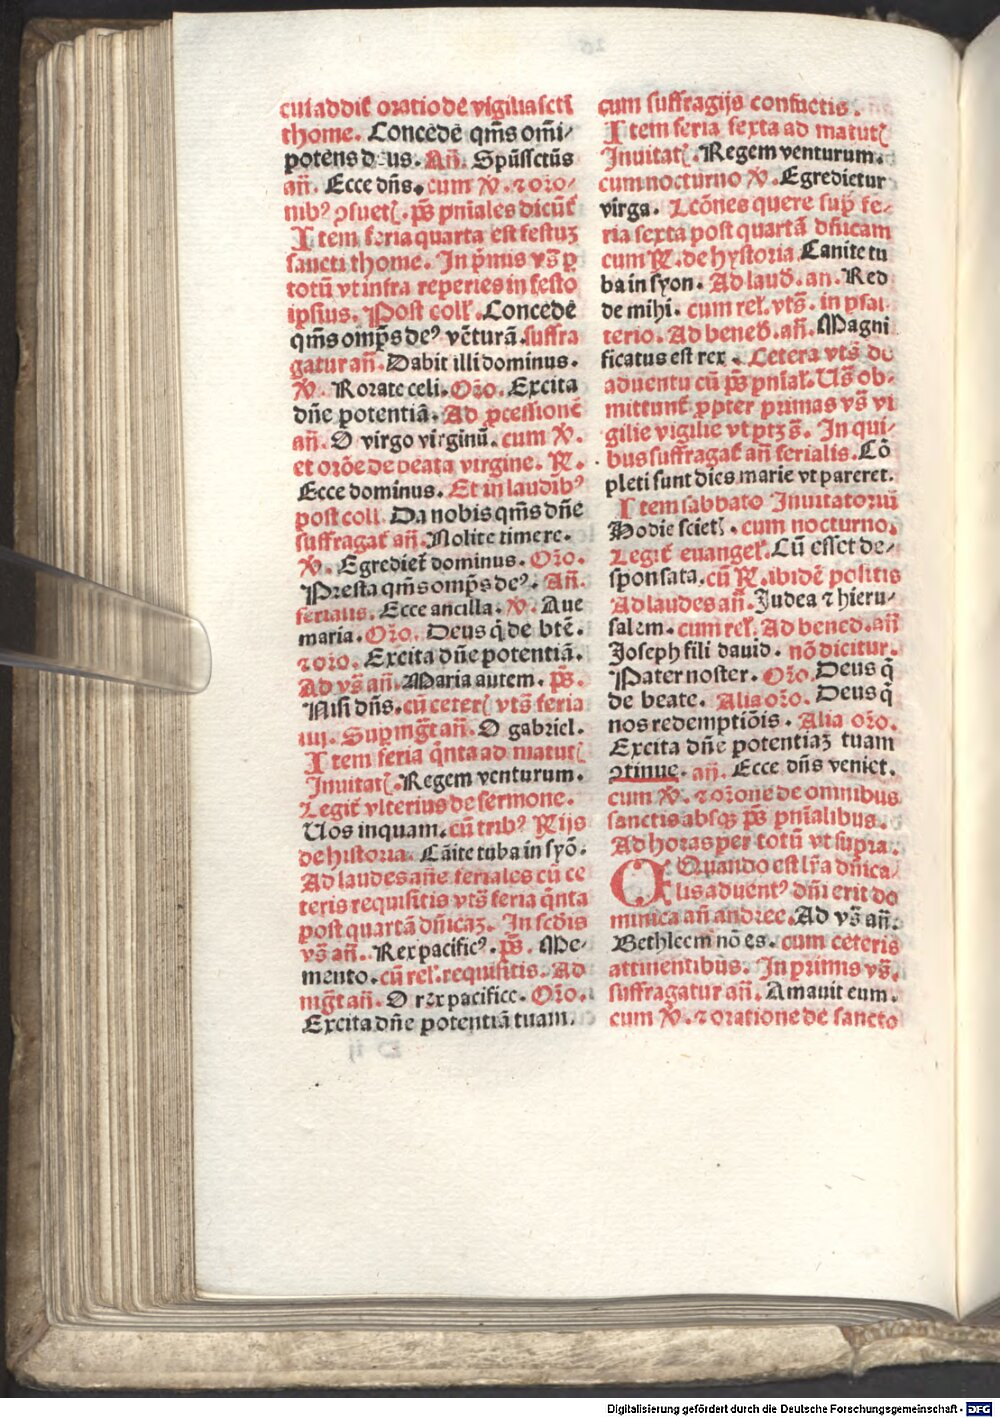 cui addit᷑ oratio de vigilia sctī
thome. Concede q̄ms omī⸗
potens deus. An̄. Spūssctūs
an̄. Ecce dn̄s. cum ꝟ. ⁊ oro⸗
nibꝰ ꝯsuet᷑. ps̄ pn̄iales dicūt᷑
Item feria quarta est festuꝫ
sancti thome. In p̄mis vs̄ ꝑ
totū vt infra reperies in festo
ipsius. Post coll᷑. Concede
qm̄s omp̄s deꝰ vētura. suffra
gatur an̄. Dabit illi dominus.
ꝟ. Rorate celi. Oro. Excita
dn̄e potentiā. Ad ꝓcessionē
an̄. O virgo virginū. cum ꝟ.
et orōe de beata virgine. ℞.
Ecce dominus. Et in laudibꝰ
post coll. Da nobis qm̄s dn̄e
suffragat᷑ an̄. Nolite timere.
ꝟ. Egrediet᷑ dominus. Oro.
Presta qm̄s omp̄s deꝰ. An̄.
ferialis. Ecce ancilla. ꝟ. Aue
maria. Oro. Deus q̄ de btē.
⁊ oro. Excita dn̄e potentiā.
Ad vs̄ an̄. Maria autem. ps̄.
Nisi dn̄s. cū ceter᷑ vts̄ feria
iiij. Sup mḡt an̄. O gabriel.
Item feria q̄nta ad matut᷑
Inuitat᷑. Regem venturum.
Legit᷑ vlterius de sermone.
Uos inquam. cū tribꝰ Rijs
de historia. Cāite tuba in syō.
Ad laudes an̄e feriales cū ce
teris requisitis vts̄ feria q̄nta
post quartā dn̄icaꝫ. In scd̄is
vs̄ an̄. Rex pacificꝰ. ps̄. Me⸗
mento. cū rel᷑. requisitis. Ad
mḡt an̄. O rex pacifice. Oro.
Excita dn̄e potentiā tuam.
cum suffragijs consuetis.
Item feria sexta ad matut᷑
Inuitat᷑. Regem venturum.
cum nocturno ꝟ. Egredietur
virga. Lcōnes quere sup̄ fe⸗
ria sexta post quartā dn̄icam
cum ℞. de hystoria Canite tu
ba in syon. Ad laud᷑. an. Red
de mihi. cum rel᷑. vts̄. in psal
terio. Ad bened᷑. an̄. Magni
ficatus est rex. Cetera vts̄ de
aduentu cū ps̄ pn̄ial᷑. Us̄ ob⸗
mittunt᷑ ꝓpter primas vs̄ vi
gilie vigilie vt ptꝫ s̄. In qui⸗
bus suffragat᷑ an̄ ferialis. Cō
pleti sunt dies marie vt pareret.
Item sabbato Inuitatoriū
Hodie sciet᷑. cum nocturno.
Legit᷑ euangel᷑. Cū esset de⸗
sponsata. cū ℞. ibidē positis
Ad laudes an̄. Judea ⁊ hieru⸗
salem. cum rel᷑. Ad bened. an̄
Joseph fili dauid. nō dicitur.
Pater noster. Oro. Deus q̄
de beate. Alia oro. Deus q̄
nos redemptiōis. Alia oro.
Excita dn̄e potentiaꝫ tuam
ꝯtinue. an̄. Ecce dn̄s veniet.
cum ꝟ. ⁊ orone de omnibus
sanctis absqꝫ ps̄ pn̄ialibus.
Ad horas per totū vt supra.
Quando est lr̄a dn̄ica⸗
lis a aduentꝰ dn̄i erit do
minica an̄ andree. Ad vs̄ an̄.
Bethleem nō es. cum ceteris
attinentibus. In primis vs̄.
suffragatur an̄. Amauit eum.
cum ꝟ. ⁊ oratione de sancto
Digitalisierung gefördert durch die Deutsche Forschungsgemeinschaft - DFG